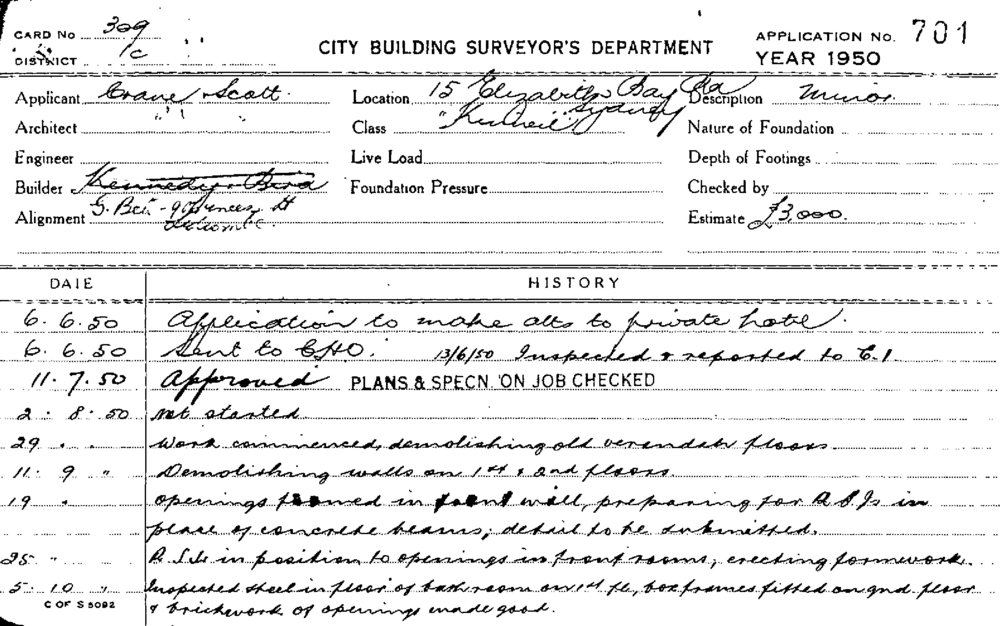 CARD No 309
DISTRICT 1C
CITY BUILDING SURVEYOR'S DEPARTMENT
APPLICATION No. 701
YEAR 1950
Applicant Crane & Scott.
Location 15 Elizabeth Bay Rd Sydney
Description Minor.
Architect
Class "Kinneil"
Nature of Foundation
Engineer
Live Load
Depth of Footings
Builder Kennedy & Bird
Foundation Pressure
Checked by
Alignment G. - 9 St
Estimate £3000.
DATE HISTORY
6. 6. 50 Application to make alts to private hotel.
6. 6. 50 Sent to CHO. 13/6/50 Inspected & reported to C.I.
11. 7. 50 Approved PLANS & SPECN. ON JOB CHECKED
2. 8. 50 Not started
29 " " Work commenced, demolishing old verandah floors
11. 9 " Demolishing walls on 1st & 2nd floors.
19 " openings formed in front wall, preparing for R.S.Js in
place of concrete beams; detail to be submitted.
25 " " R.S.Js in position to openings in front rooms, erecting formwork.
5. 10 " Inspected steel in floor of bathroom on 1st fl, box frames fitted on gnd floor
& brickwork of openings made good.
C OF S 5092